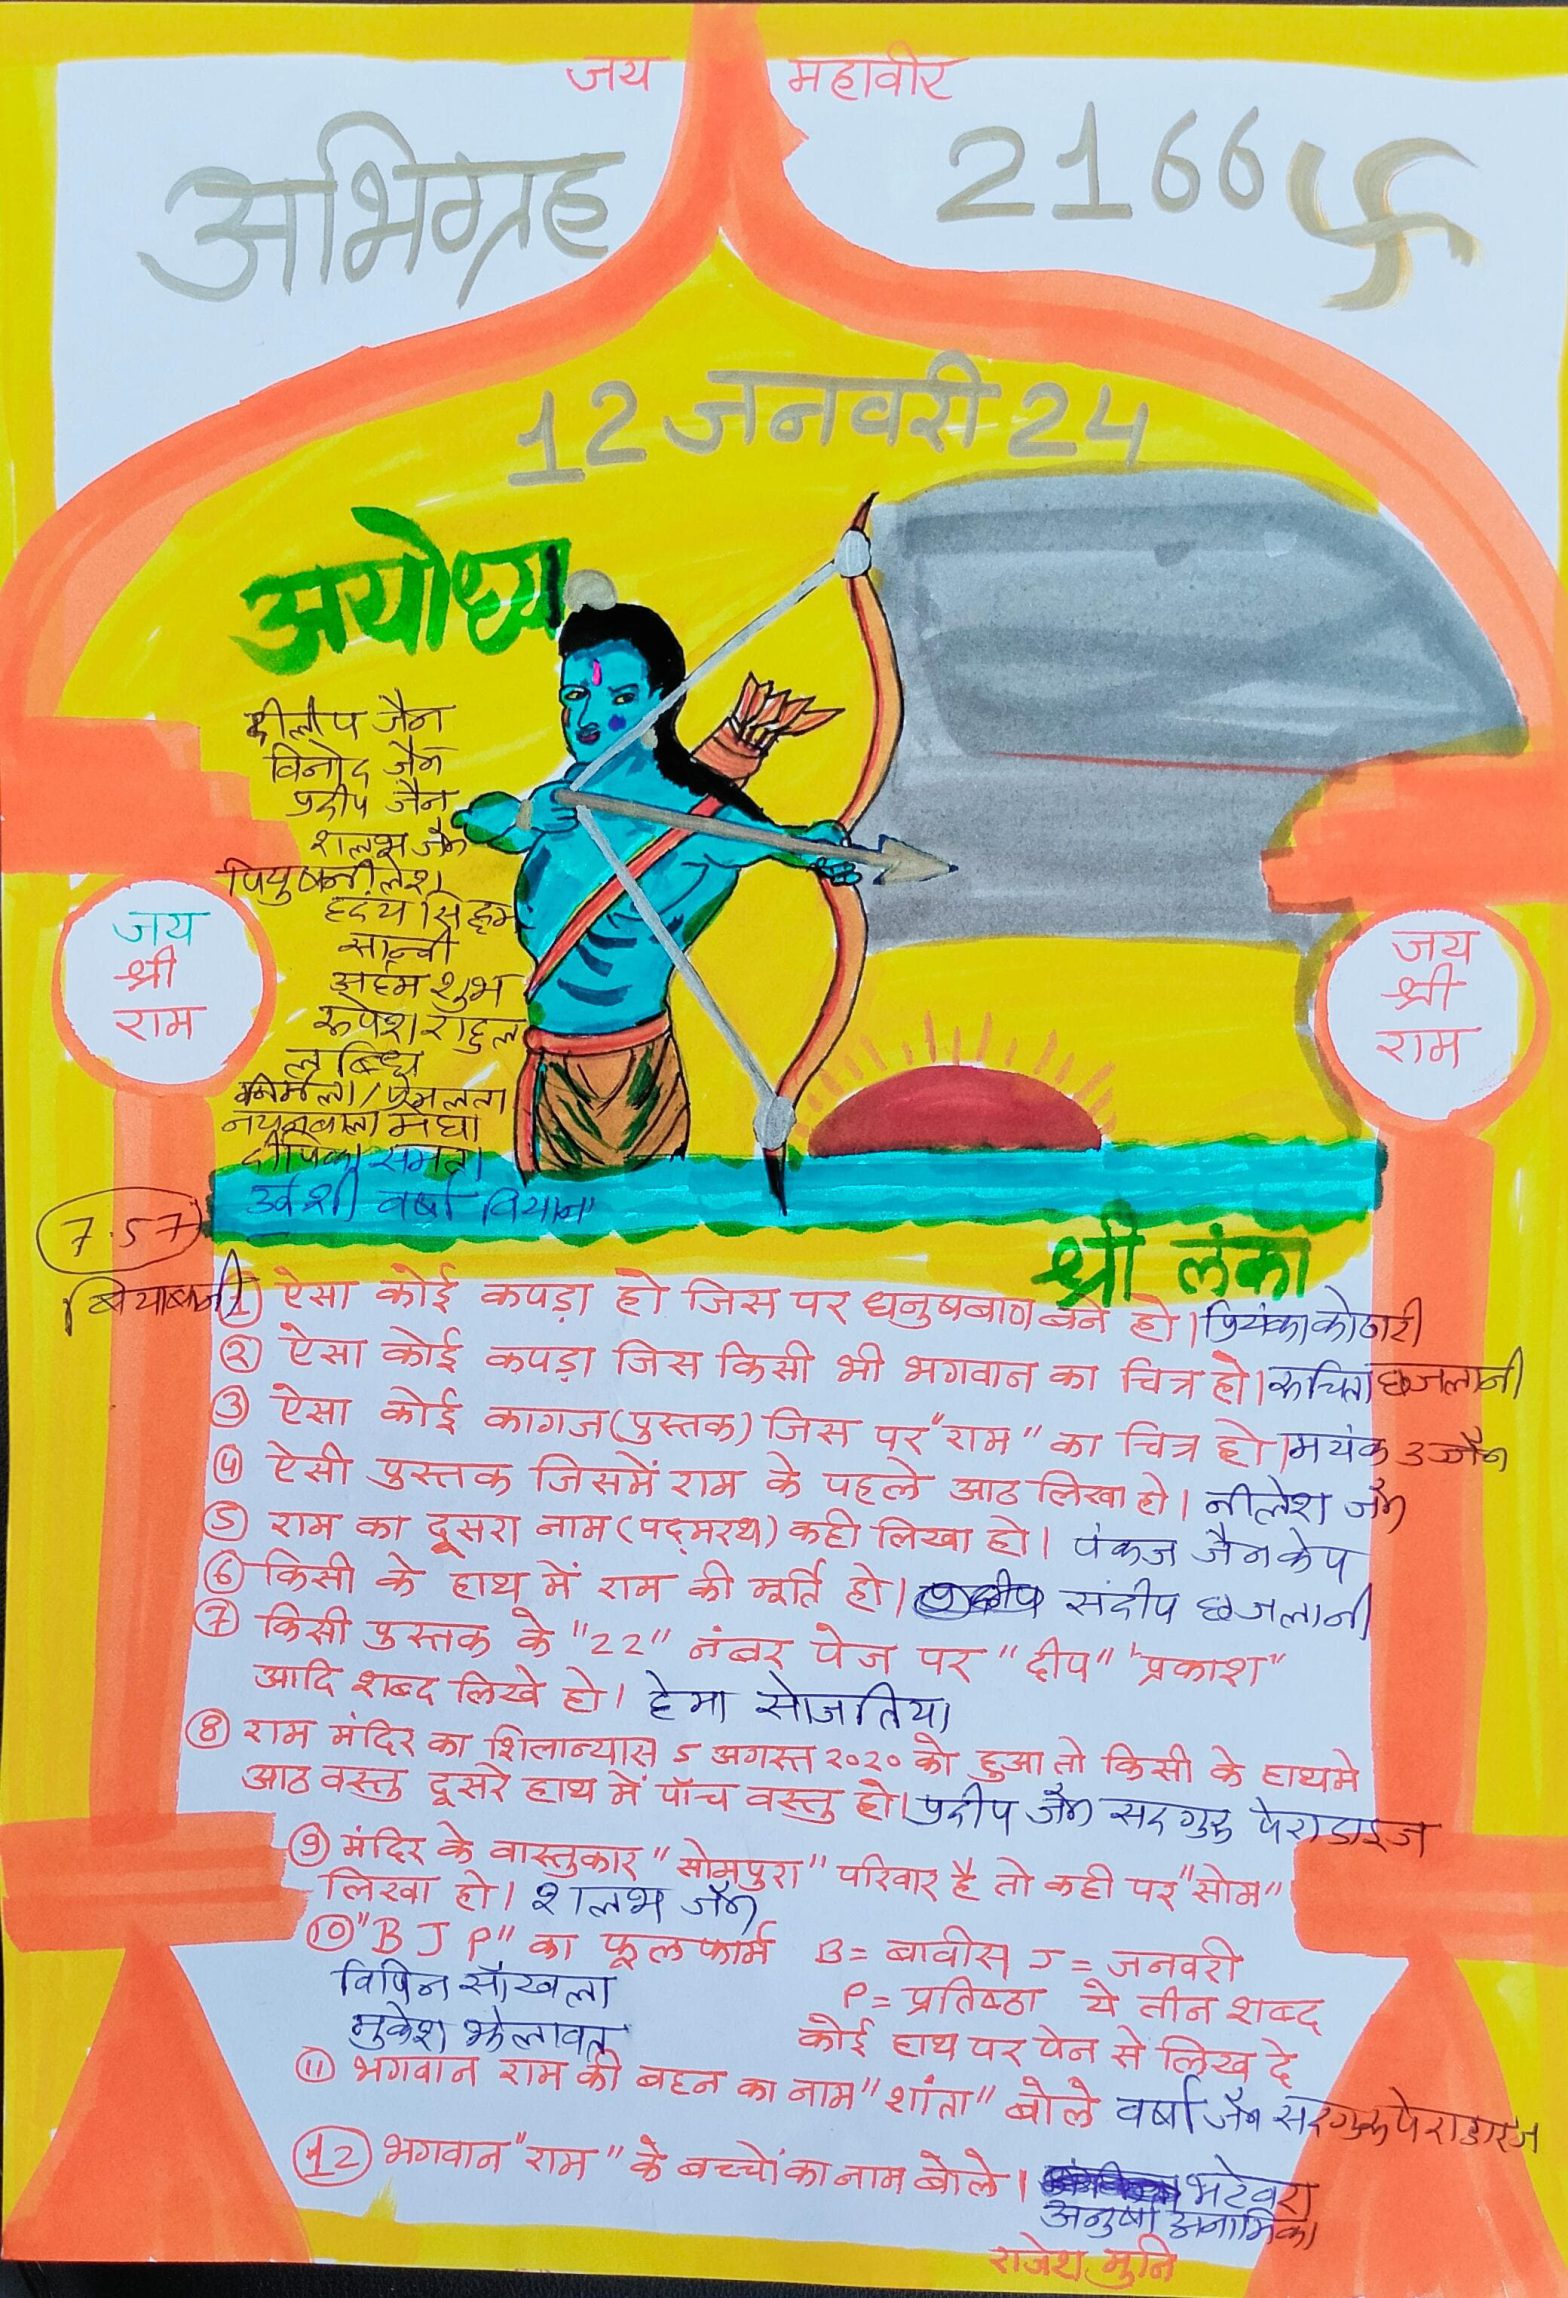 जय महावीर
अभिग्रह 2166 卐
12 जनवरी 24
अयोध्या
दीलीप जैन
विनोद जैन
प्रदीप जैन
शलभ जैन
पियुष नीलेश
सान्वी
अर्हम शुभ
रूपेश राहुल
लब्धि
निर्मला/प्रेमलता
मेघा
दीपिका समता
उर्वशी वर्षा वियान
जय
श्री
राम
जय
श्री
राम
7.57
श्री लंका
① ऐसा कोई कपड़ा हो जिस पर धनुषबाण बने हो। प्रियंका कोठारी
② ऐसा कोई कपड़ा जिस किसी भी भगवान का चित्र हो। रूचिता छजलानी
③ ऐसा कोई कागज (पुस्तक) जिस पर "राम" का चित्र हो। मयंक उज्जैन
④ ऐसी पुस्तक जिसमें राम के पहले आठ लिखा हो। नीलेश जैन
⑤ राम का दूसरा नाम (पद्मरथ) कही लिखा हो। पंकज जैन केप
⑥ किसी के हाथ में राम की मूर्ति हो। संदीप छजलानी
⑦ किसी पुस्तक के "22" नंबर पेज पर "दीप" "प्रकाश"
आदि शब्द लिखे हो। हेमा सोजतिया
⑧ राम मंदिर का शिलान्यास 5 अगस्त २०२० को हुआ तो किसी के हाथमे
आठ वस्तु दूसरे हाथ में पाँच वस्तु हो। प्रदीप जैन सदगुरु पेराडाइज
⑨ मंदिर के वास्तुकार "सोमपुरा" परिवार है तो कही पर "सोम"
लिखा हो। शलभ जैन
⑩ "B J P" का फूलफार्म B = बावीस J = जनवरी
विपिन साँखला P = प्रतिष्ठा ये तीन शब्द
मुकेश झेलावत कोई हाथ पर पेन से लिख दे
⑪ भगवान राम की बहन का नाम "शांता" बोले वर्षा जैन सदगुरु पेराडाइज
⑫ भगवान "राम" के बच्चों का नाम बोले। भटेवरा
अनुषा अनामिका
राजेश मुनि